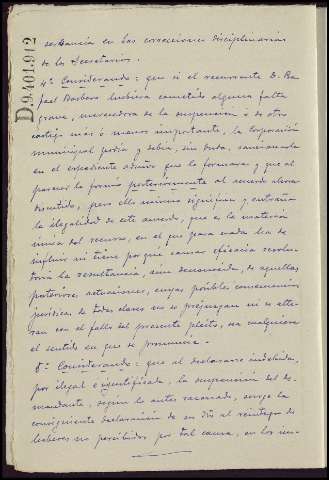 D.9.401.912
sustancia en las correcciones disciplinarias
de los Secretarios.
4º Considerando: que si el recurrente D. Ra-
fael Barbera hubiera cometido alguna falta
grave, merecedora de la suspensión ó de otro
castigo más ó menos importante, la Corporación
municipal podía y debía, sin duda, sancionarla
en el expediente que le formara y que al
parecer le formó posteriormente al acuerdo ahora
discutido, pero ello mismo significa y entraña
la ilegalidad de este acuerdo, que es la materia
única del recurso, en el que para nada ha de
influir ni tiene por que causar eficacia
la resultancia, aun desconocida, de aquellas
posteriores actuaciones, cuyas posibles consecuencias
de todas clases no se prejuzgan ni se alte-
ran con el fallo del presente pleito, sea cualquiera
el sentido en que se pronuncie.
5º Considerando: que al declararse indebida,
por ilegal e injustificada, la suspensión del de-
mandante, según lo antes razonado, surge la
consiguiente declaración de su dro al reintegro de
haberes no percibidos por tal causa, en los